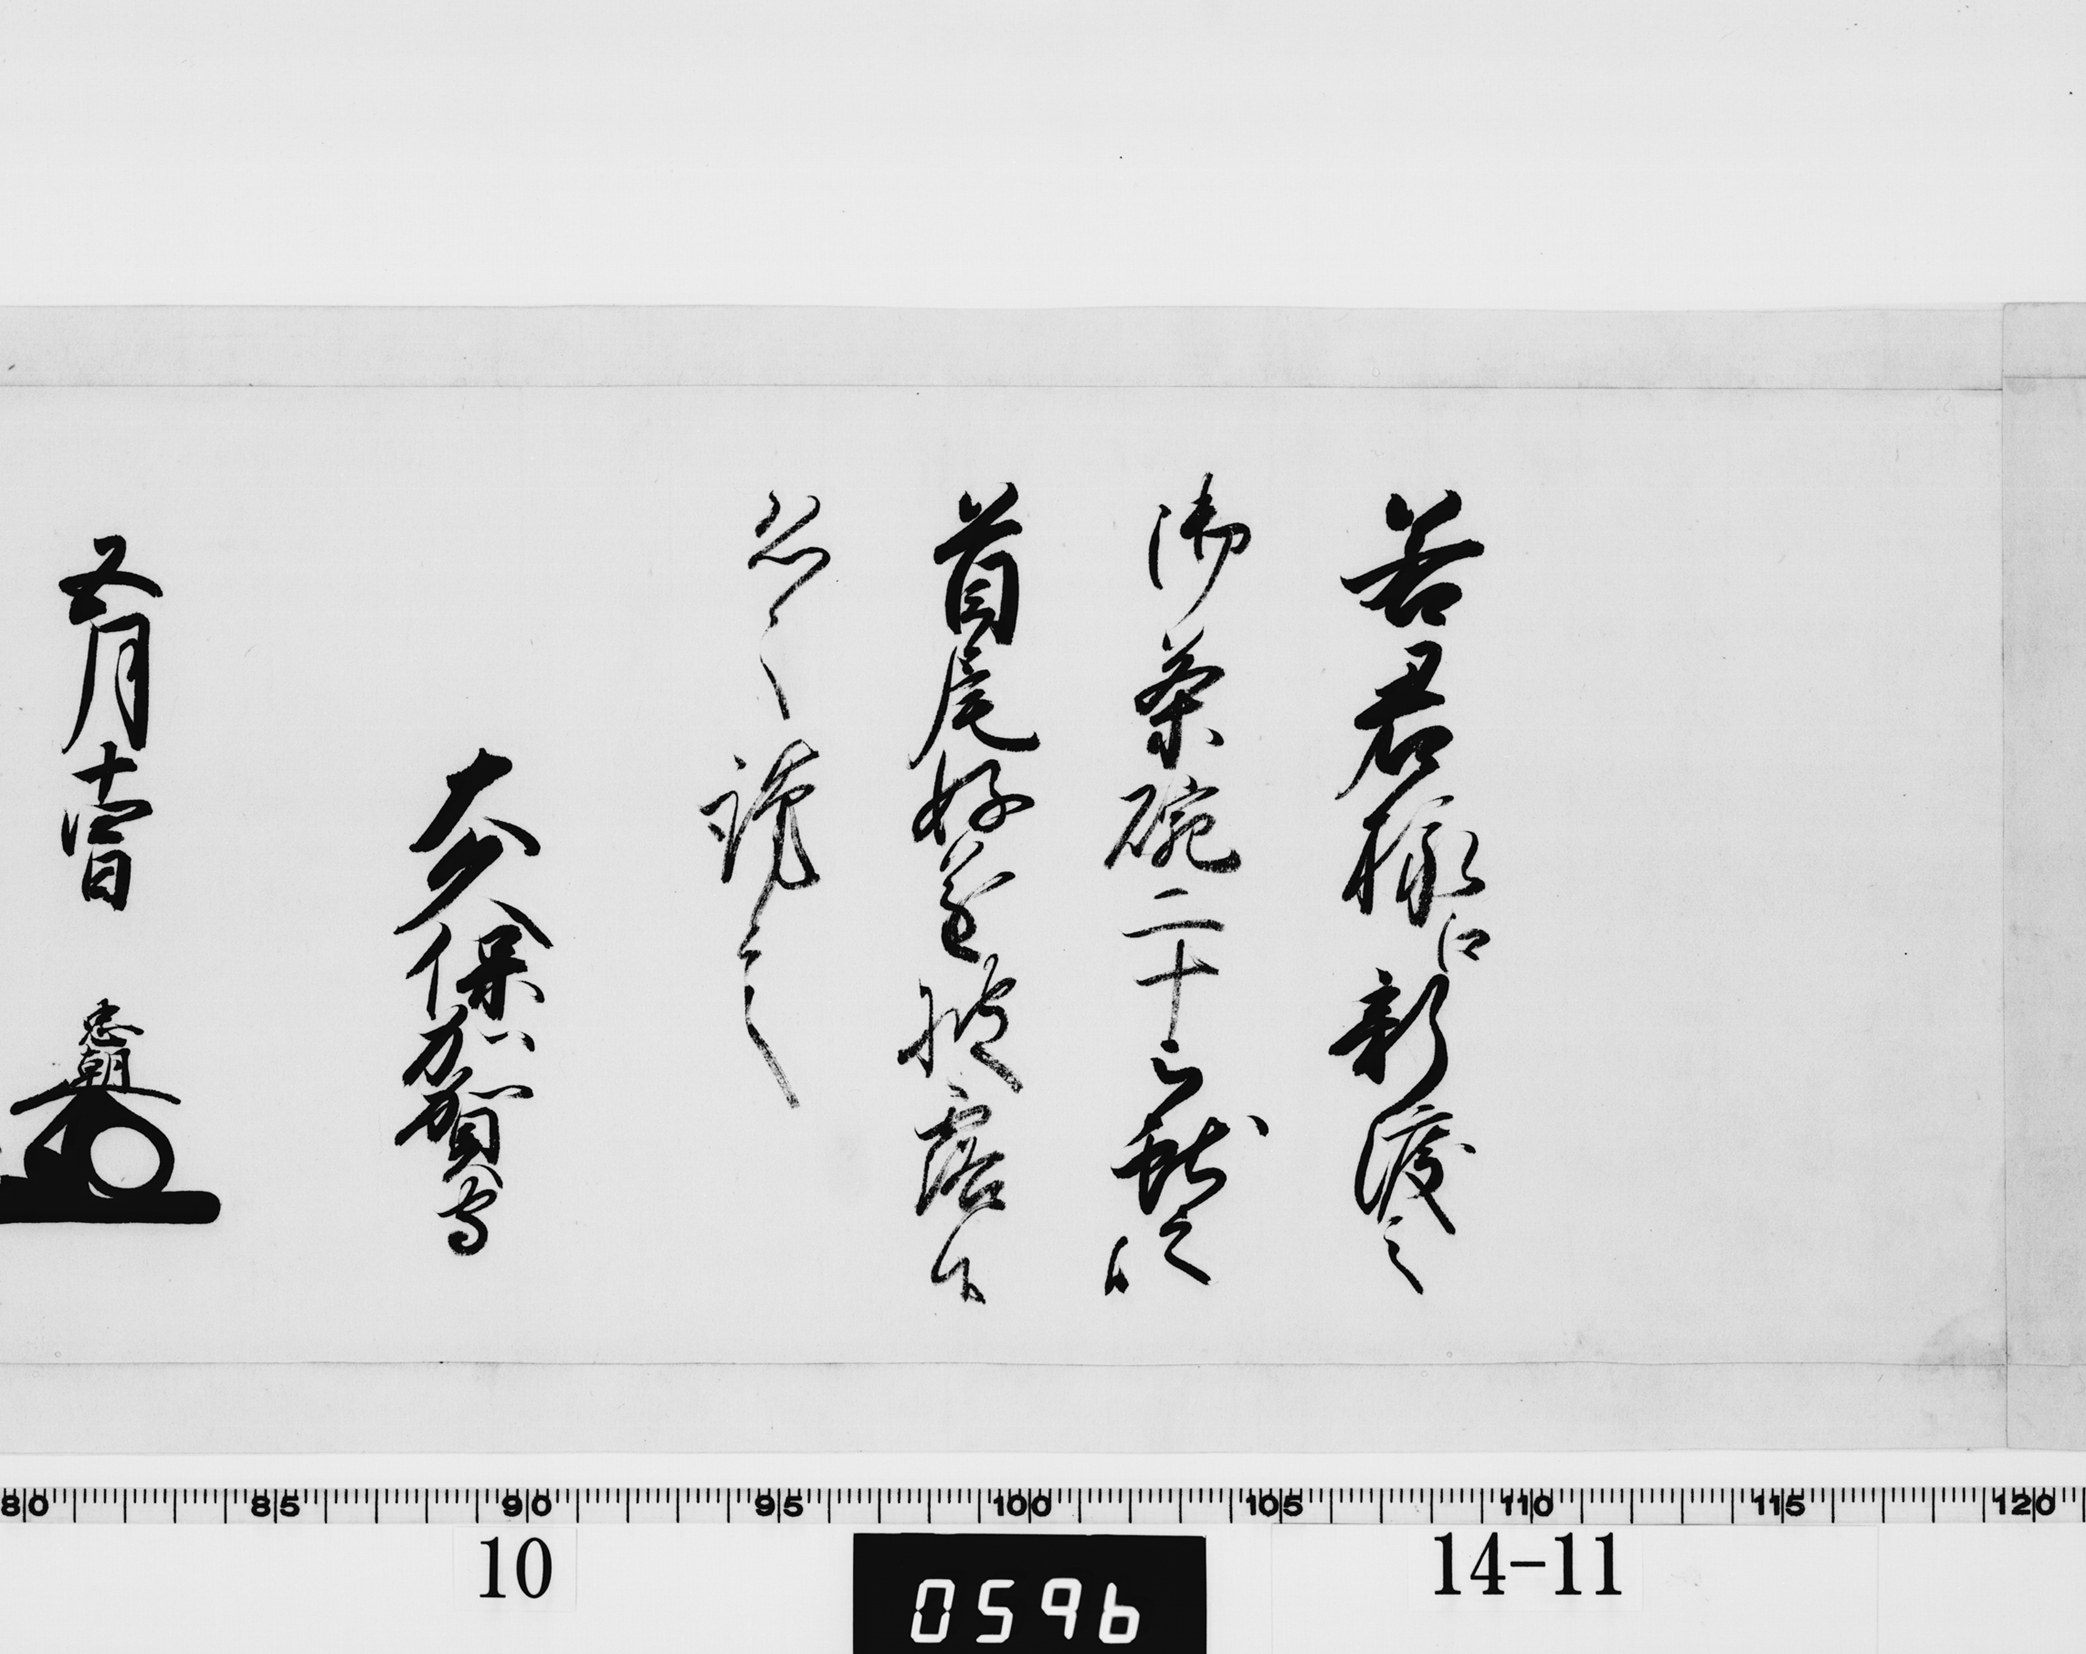 若君様江新渡之
御茶碗二十被献之候
首尾好遂披露候
恐々謹言
大久保加賀守
五月十四日 忠朝
80 85 90 95 100 105 110 115 120
10 0596 14-11